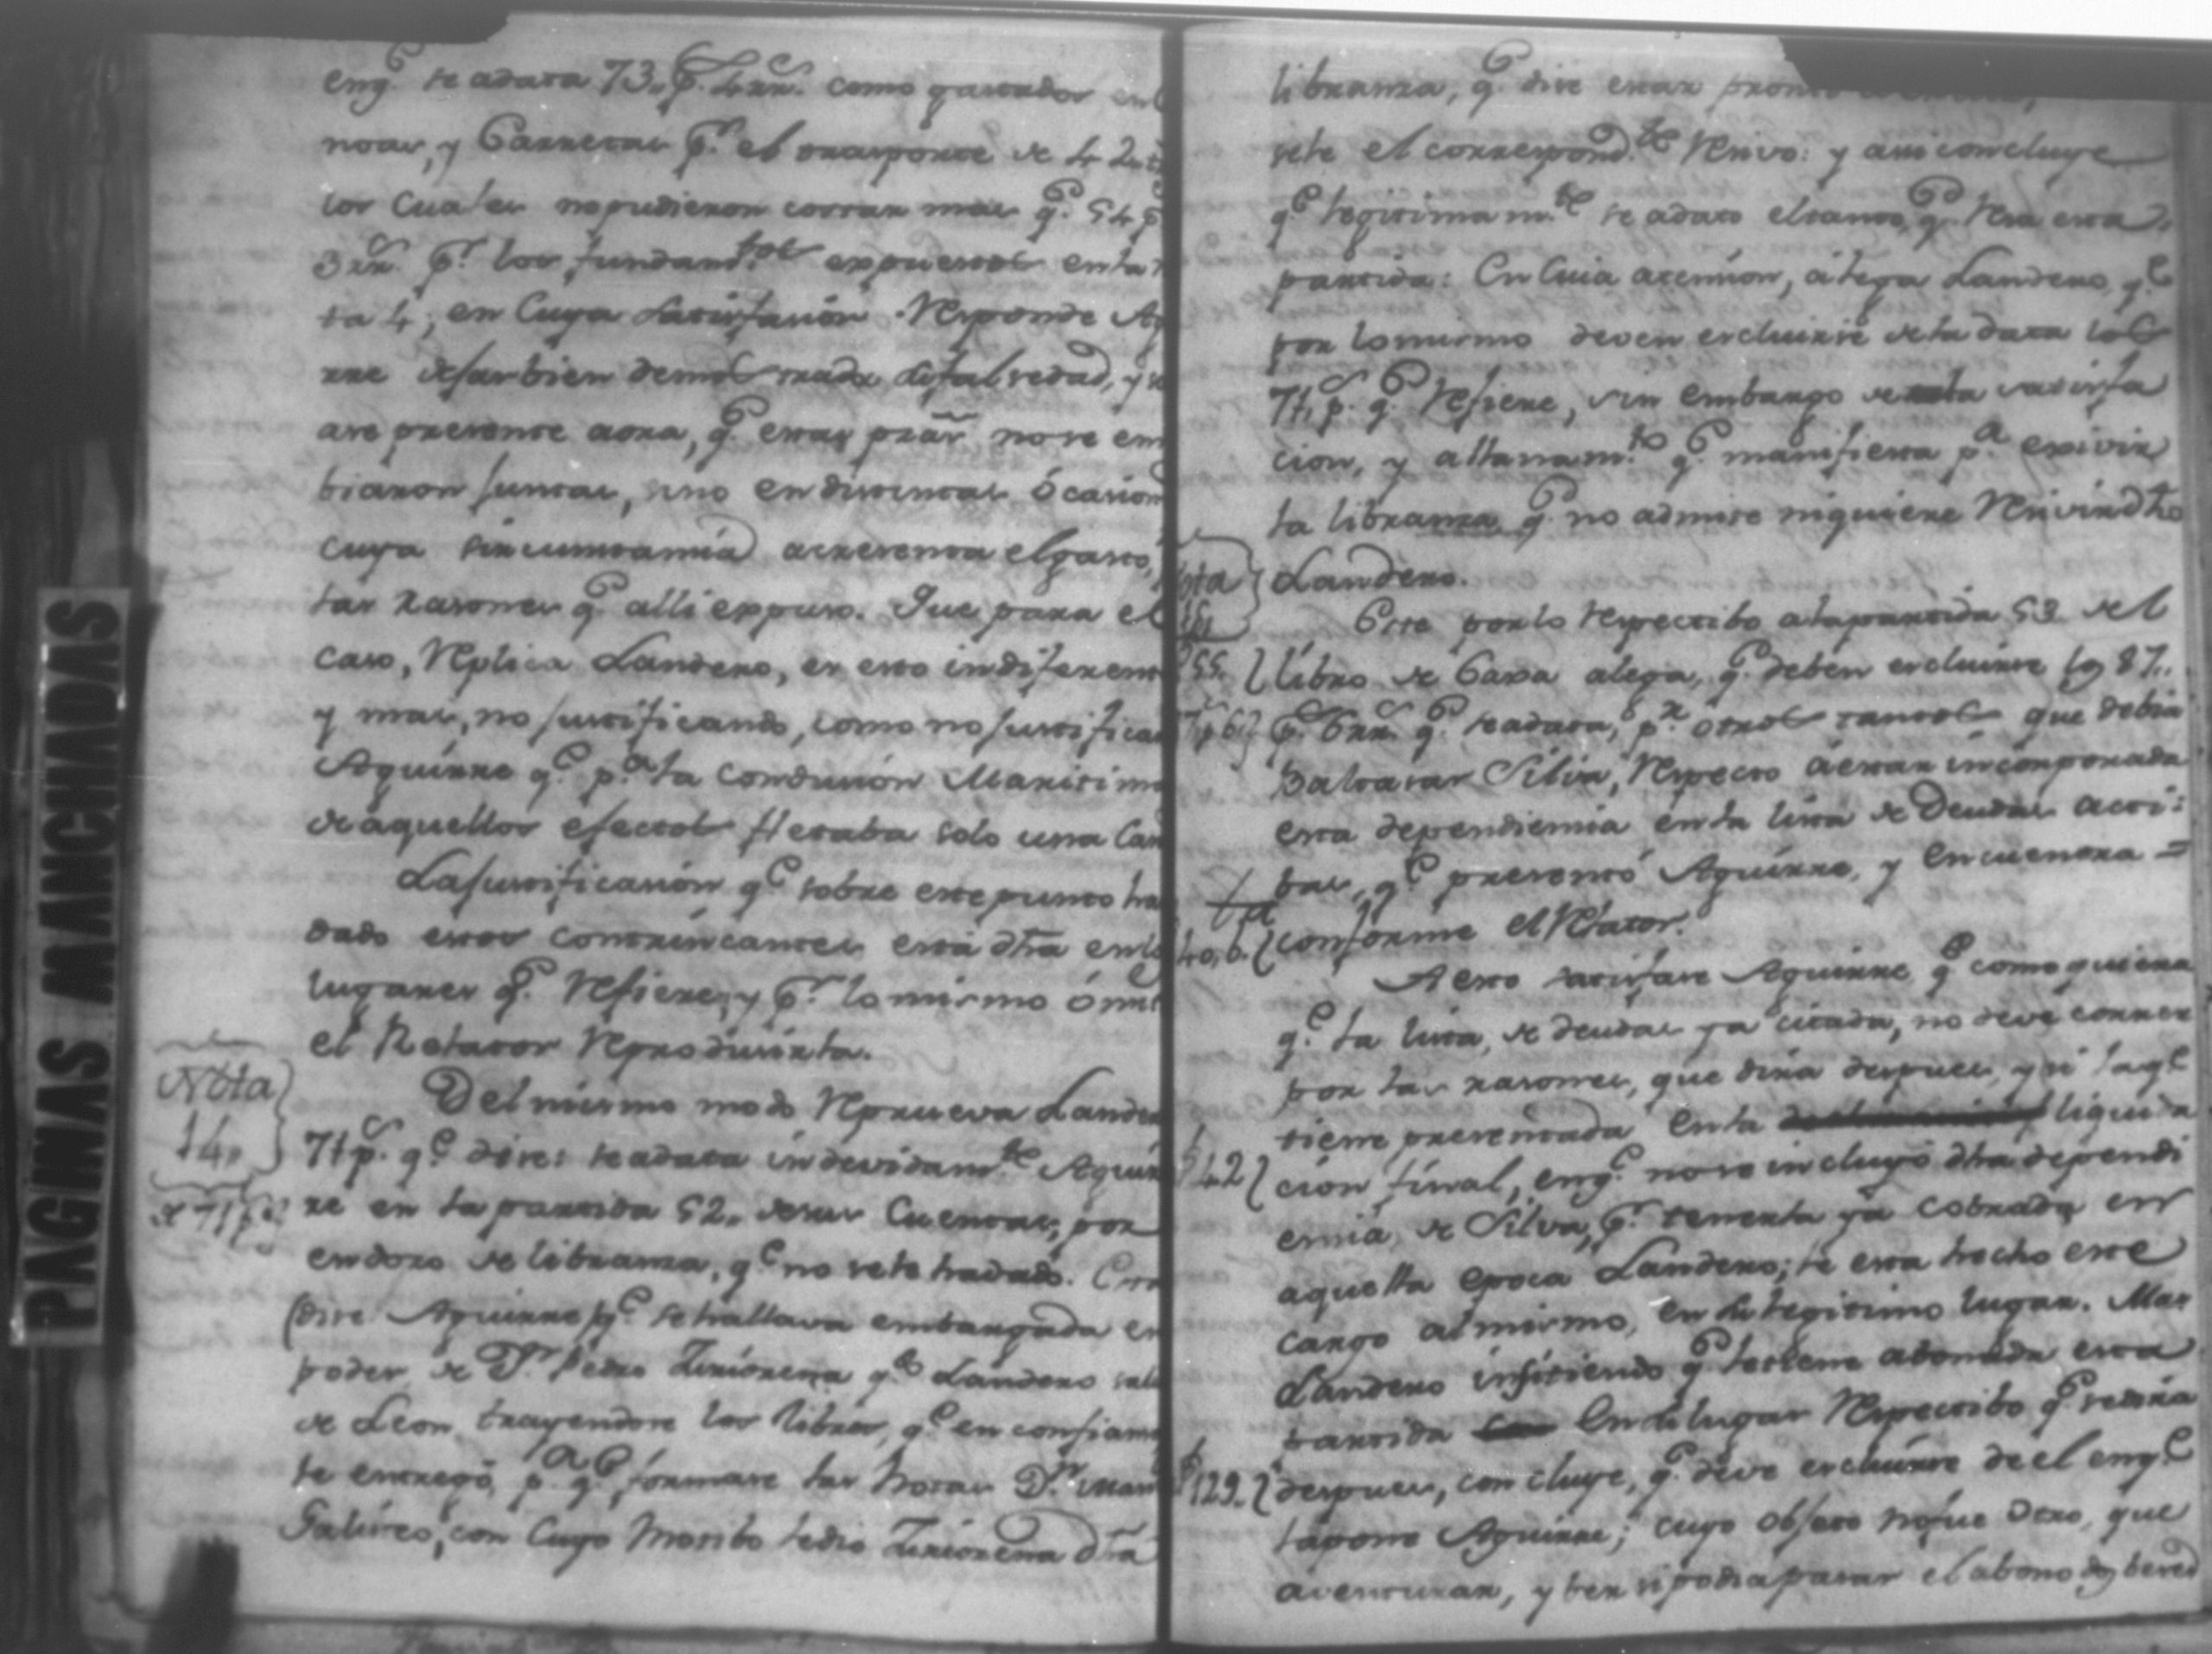 enq.e se adata 73. p.s 4 rr.s como gastados en
noas, y Carretas p.r el trasporte de 42
los Cuales no pudieron costar mas q.e 54 p
3 rr.s p.r los fundam.tos expuestos en la
ta 4, en Cuya Satisfasion Responde Ag
rre desar bien demostrada su falsedad, y
ase presente aora, q.e estas no se em
biaron juntas, sino en distintas ócasion
cuya sircunstansia acresenta el gasto,
las rasones q.e alli expuso. Que para el
caso, Replica Landero, es esto indiferent
y mas, no justificando, como no justifica
Aguirre q.e p.a la condusión Maritima
de aquellos efectos fletaba solo una Can
La justificasion q.e sobre este punto ha
dado estos contrincantes está dha en lo
lugares q.e Refiere, y p.r lo mismo ómi
el Relator Reprodusirla.
Nota
14.
Del mismo modo Reprueva Lande
71 p.s q.e dise: se adata indevidam.te Aguir
re en la partida 52. de sus Cuentas, por
endoso de libransa, q.e no se le ha dado. Est
(dise Aguirre) q.e se hallava embargada en
poder de D.n Pedro q.do Landero sali
de Leon trayendose los libros, q.e en confiansa
le entregó, p.a q.e formase las Notas D.n Man
con Cuyo Motibo le dio dha
libransa, q.e dise estar
sele el correspond.te Resivo: y asi concluye
q.e legitimam.te se adató el tanto, q.e Resa esta
partida: En Cuia atension, álega Landero, q.e
por lo mismo deven escluirse de la data los
71, p.s q.e Refiere, sin embargo de la satisfa
cion, y allanam.to q.e manifiesta p.a exivir
la libransa q.e no admite ni quiere Resivir dho
Landero.
Nota
Este por lo respectibo a la partida 53 del
libro de Caxa alega, q.e deben escluirse los 87.
p.s 6 rr.s q.e se adata, p.r otros tantos que debia
Baltasar Silva, Respecto á estar incorporada
esta dependiensia en la lista de Deudas acti:
bas, q.e presentó Aguirre, y Encuentra =
conforme el Relator.
A esto satisfase Aguirre q.e como quiera
q.e la lista, de deudas ya citada, no deve correr
por las rasones, que dirá despues, y si la q.e
tiene presentada en la liquida
42
ción final, en q.e no se incluyó dha dependi
ensia de Silva, p.r tenerla ya cobrada en
aquella epoca Landero; le esta hecho este
cargo al mismo, en su legitimo lugar. Mas
Landero insistiendo q.e le tiene abonada esta
partida En su lugar Respectibo q.e se dirá
129.
despues, concluye, q.e deve escluirse de el en q.e
la pone Aguirre; cuyo objeto no fue Otro, que
aventurar, y ber si podia pasar el abono
PAGINAS MANCHADAS